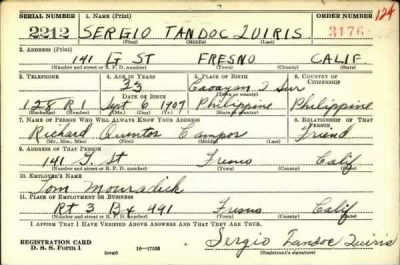 SERIAL NUMBER 1. NAME (Print) ORDER NUMBER 124
2212 SERGIO TANDOC QUIRIS. 3176
(First) (Middle) (Last)
2. ADDRESS (Print)
141 G ST FRESNO CALIF.
(Number and street or R. F. D. number) (Town) (County) (State)
3. TELEPHONE 4. AGE IN YEARS 5. PLACE OF BIRTH 6. COUNTRY OF CITIZENSHIP
33 Sur
DATE OF BIRTH (Town or county)
128 R1 Sept 6 1907 Philippine Philippine
(Exchange) (Number) (Mo.) (Day) (Yr.) (State or country)
7. NAME OF PERSON WHO WILL ALWAYS KNOW YOUR ADDRESS 8. RELATIONSHIP OF THAT PERSON
Richard Campos Friend
(Mr., Mrs., Miss) (First) (Middle) (Last)
9. ADDRESS OF THAT PERSON
141 G. St Fresno Calif
(Number and street or R. F. D. number) (Town) (County) (State)
10. EMPLOYER'S NAME
Tom
11. PLACE OF EMPLOYMENT OR BUSINESS
Rt 3 Bx 491 Fresno Calif
(Number and street or R. F. D. number) (Town) (County) (State)
I AFFIRM THAT I HAVE VERIFIED ABOVE ANSWERS AND THAT THEY ARE TRUE.
REGISTRATION CARD Sergio Tandoc Quiris
D. S. S. Form 1 (over) 16—17105 (Registrant's signature)